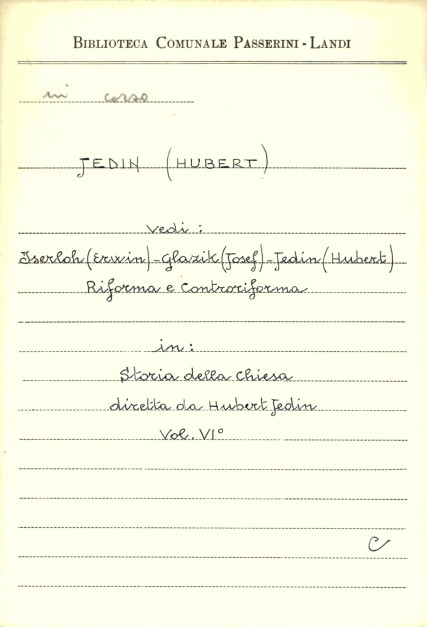 BIBLIOTECA COMUNALE PASSERINI - LANDI
in corso
JEDIN (HUBERT)
vedi :
Iserloh (Erwin) - Glazik (Josef) - Jedin (Hubert)
Riforma e Controriforma
in :
Storia della Chiesa
diretta da Hubert Jedin
Vol. VI°
C